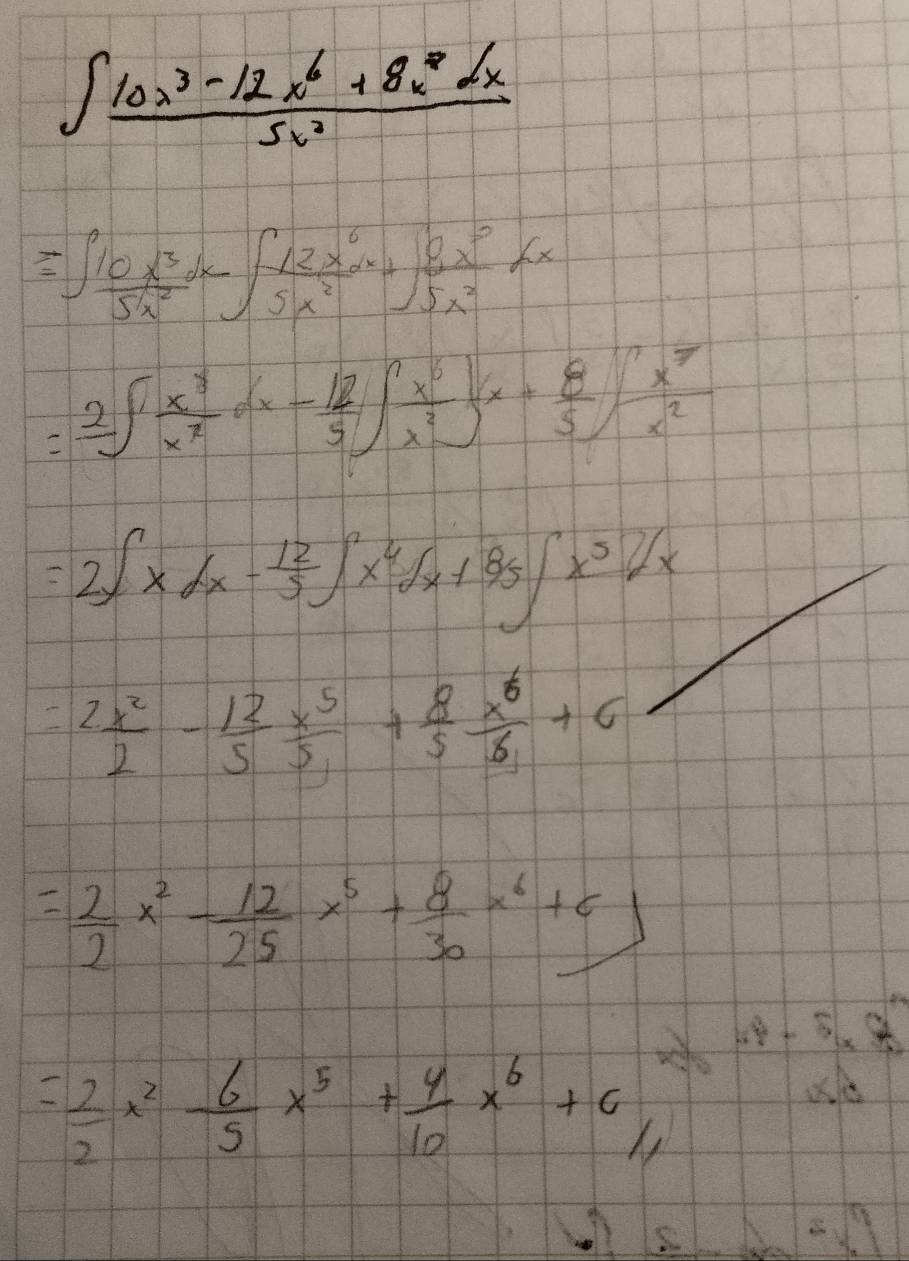 ∫ (10x³ - 12x⁶ + 8x⁷ dx) / 5x²
= ∫ 10x³/5x² dx - ∫ 12x⁶/5x² dx + ∫ 8x⁷/5x² dx
= 2 ∫ x³/x² dx - 12/5 ∫ x⁶/x² dx + 8/5 ∫ x⁷/x²
= 2 ∫ x dx - 12/5 ∫ x⁴ dx + 8/5 ∫ x⁵ dx
= 2 x²/2 - 12/5 x⁵/5 + 8/5 x⁶/6 + c
= 2/2 x² - 12/25 x⁵ + 8/30 x⁶ + c
= 2/2 x² - 6/5 x⁵ + 4/10 x⁶ + c //